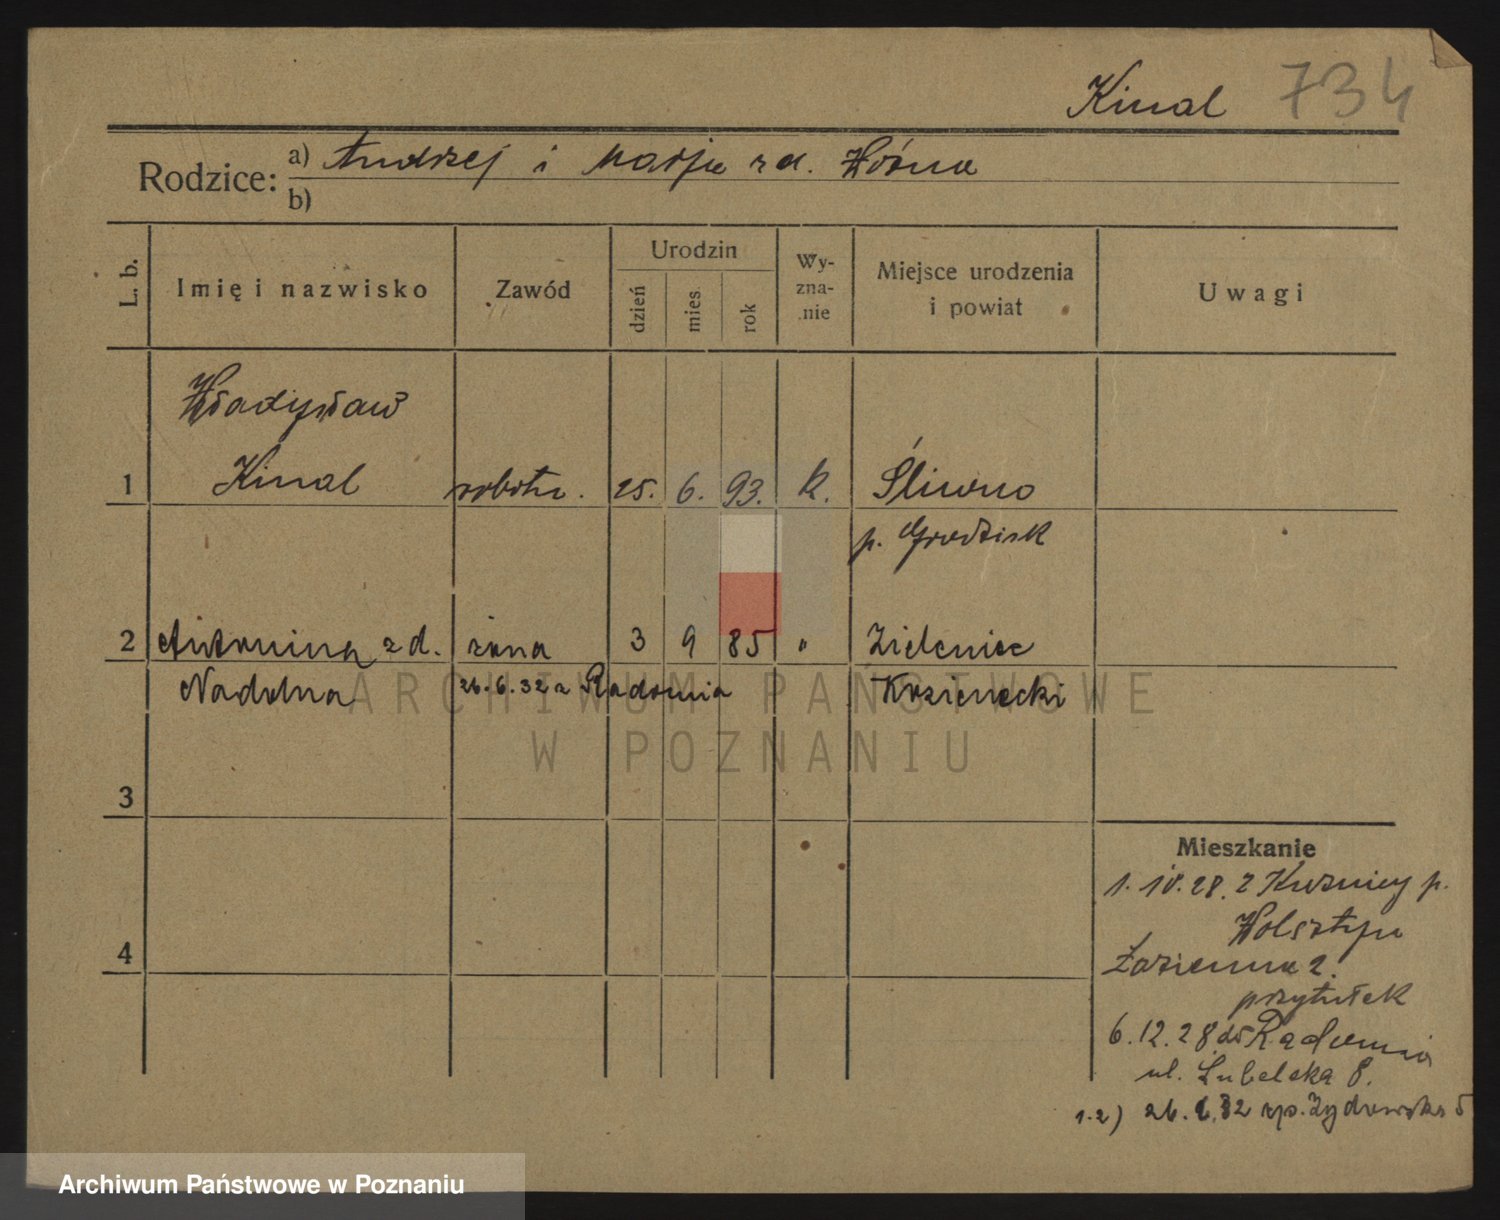 Kinal 734
Rodzice: a) Andrzej i Marja zd. Woźna
b)
L. b.
Imię i nazwisko
Zawód
Urodzin
dzień
mies.
rok
Wy-
zna-
nie
Miejsce urodzenia
i powiat
Uwagi
Władysław
1 Kinal robotn. 25. 6. 93. k. Śliwno
p. Grodzisk
2 Antonina zd. żona 3 9 85 " Zieleniec
Nadolna 26.6.32 z Radomia Kozienecki
ARCHIWUM PAŃSTWOWE
W POZNANIU
3
4
Mieszkanie
1. 10. 28. z Kuźnicy p.
Wolsztyn
Łazienna 2.
przytułek
6.12.28 do Radomia
ul. Lubelska 8.
1.2) 26.6.32 Żydowska 5
Archiwum Państwowe w Poznaniu